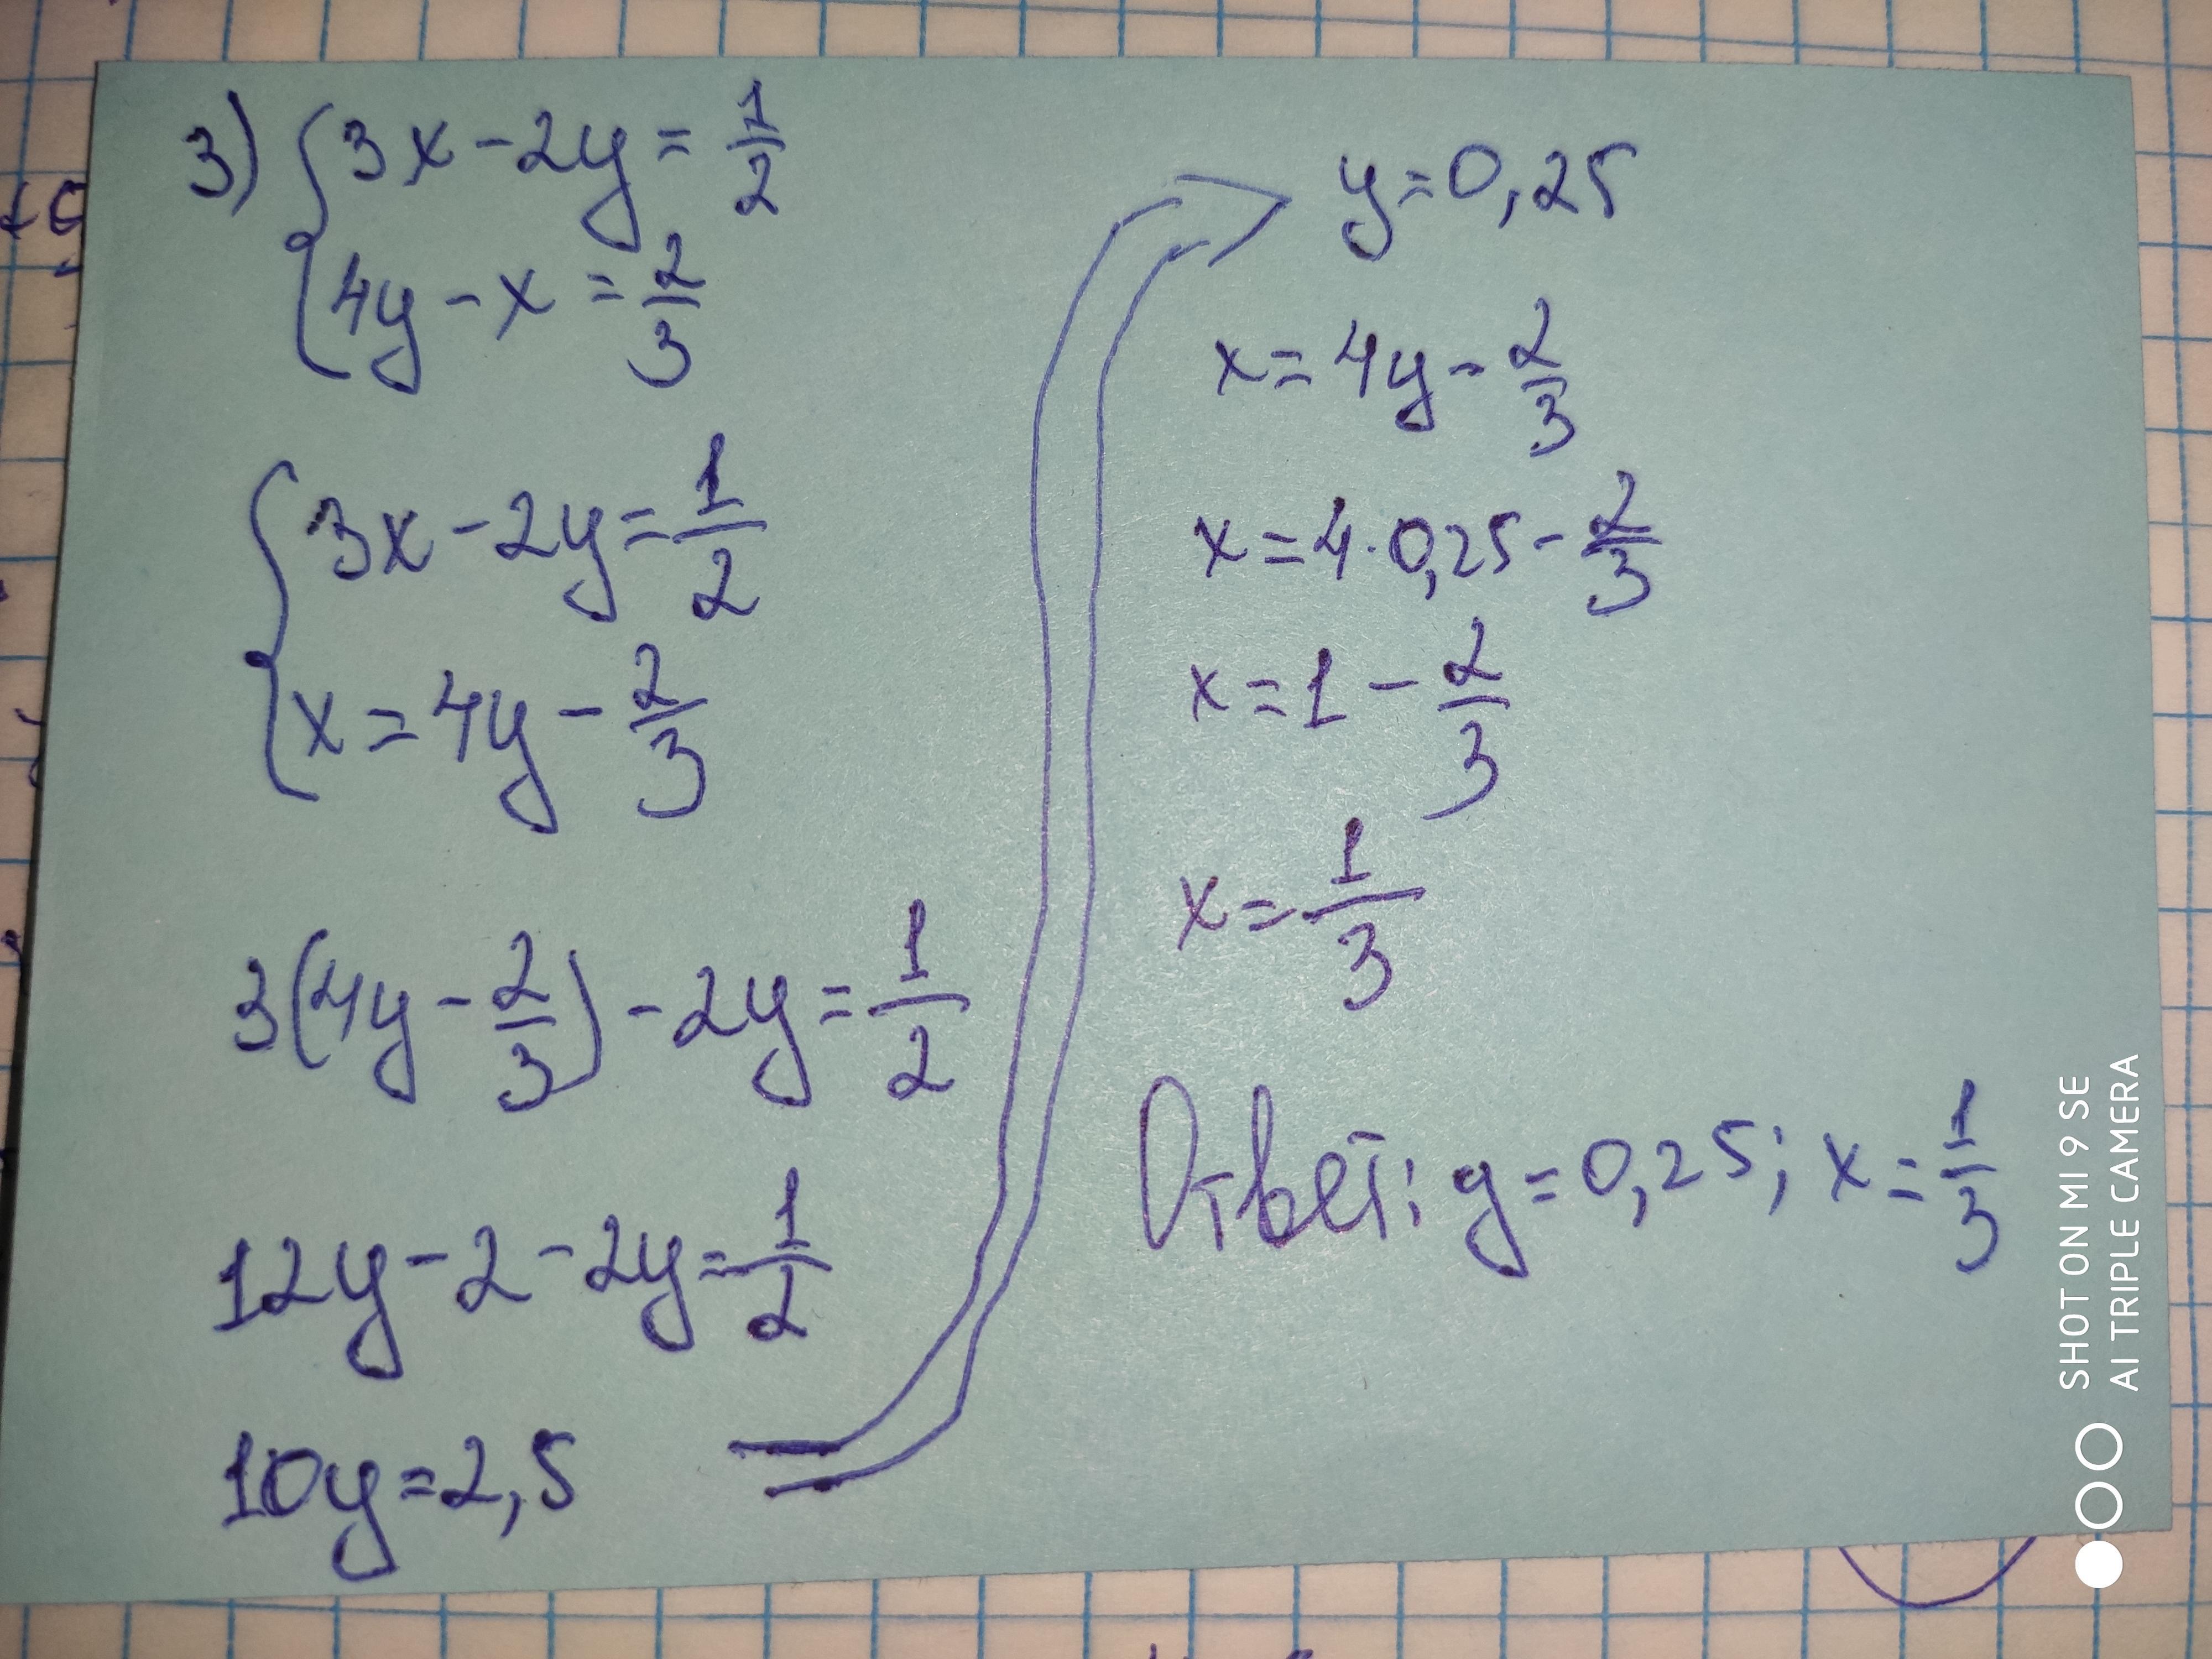 3) { 3x - 2y = 1/2
4y - x = 2/3
{ 3x - 2y = 1/2
x = 4y - 2/3
3(4y - 2/3) - 2y = 1/2
12y - 2 - 2y = 1/2
10y = 2,5
y = 0,25
x = 4y - 2/3
x = 4 · 0,25 - 2/3
x = 1 - 2/3
x = 1/3
Ответ: y = 0,25; x = 1/3
SHOT ON MI 9 SE
AI TRIPLE CAMERA